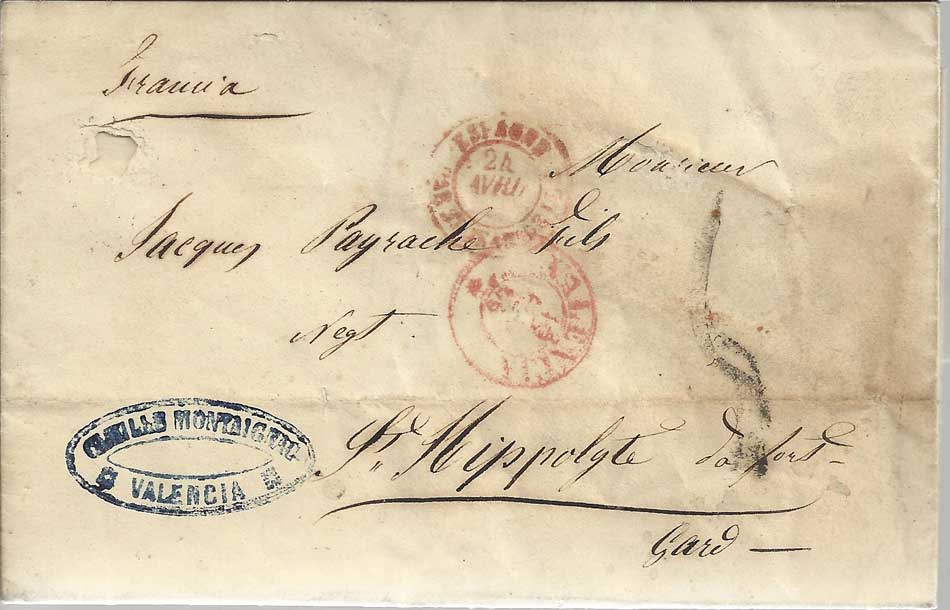 Francia
ESPAGNE
24
AVRIL
Monsieur
Jacques Payrache Fils
Negt.
VALENCIA
CAMILLE MONTAIGNAC
VALENCIA
St. Hippolyte du fort
Gard